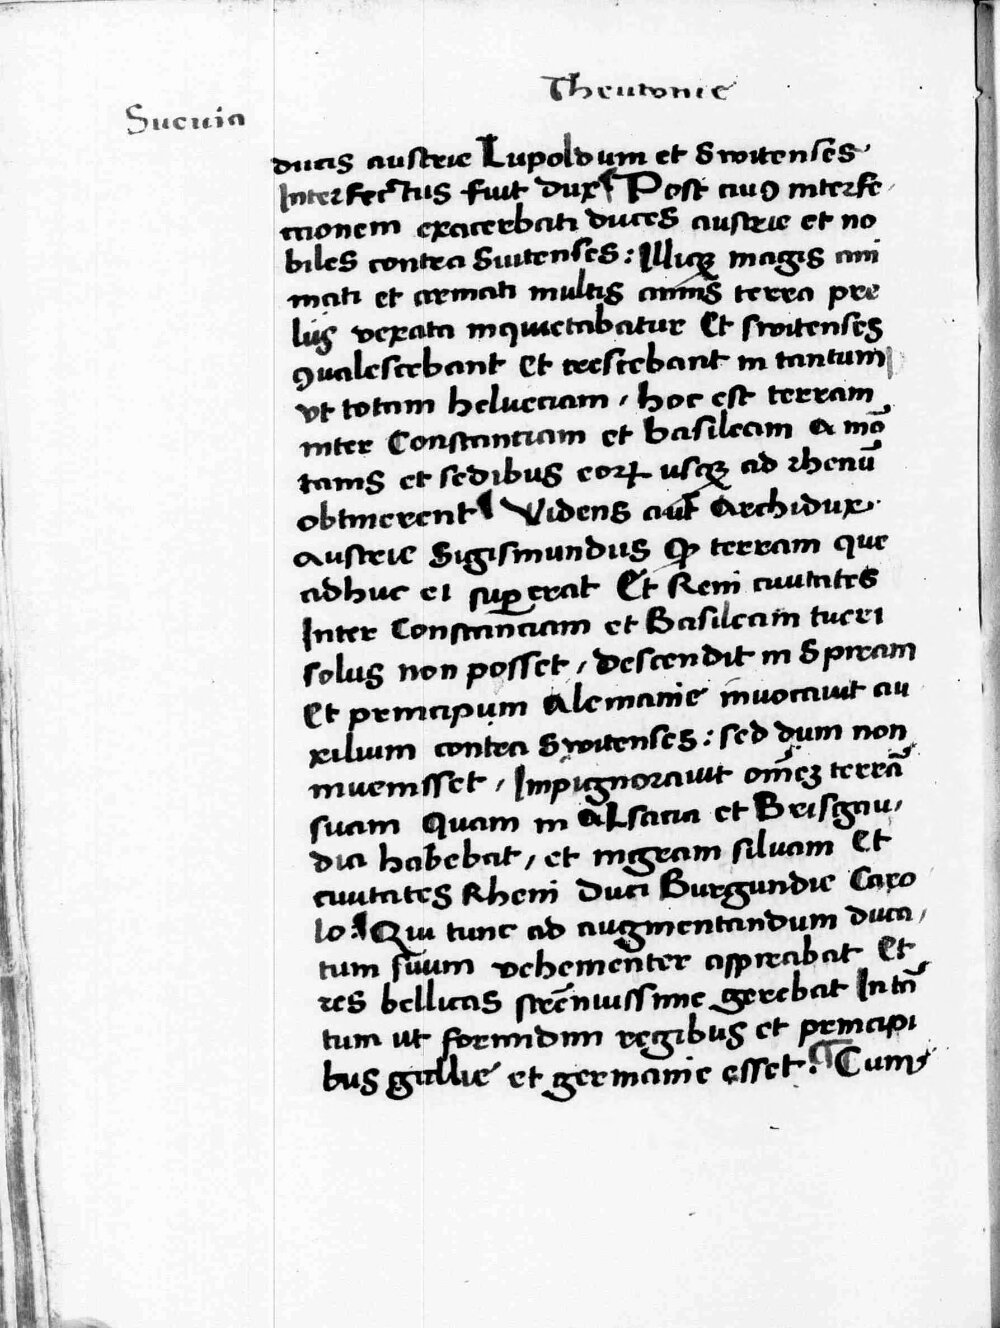 Theutonie
Sueuia
ducis austrie Lupoldum et Switenses
Interfectus fuit dux ¶ Post cuiꝯ interfe
ctionem exacerbati duces austrie et no
biles contra Suitenses : Illiqꝫ magis ani
mati et armati multis annis terra pre
liis vexata inquietabatur Et switenses
ꝯualescebant Et crescebant in tantum
vt totam helueciam / hoc est terram
inter Constanciam et basileam a mō
tanis et sedibus eoꝝ usqꝫ ad rhenū
obtinerent ¶ Videns aut̄ Archidux
Austrie Sigismundus ꝙ terram que
adhuc ei suꝑerat Et Reni ciuitates
Inter Constanciam et Basileam tueri
solus non posset / descendit in Spiram
Et principum Alemanie inuocauit au
xilium contra Switenses : sed dum non
inuenisset / Impignorauit om̄eꝫ terrā
suam Quam in Alsacia et Brisgau/
dia habebat / et nigram siluam Et
ciuitates Rheni Duci Burgundie Caro
lo : ¶ Qui tunc ad augmentandum duca/
tum suum vehementer aspirabat Et
res bellicas strēnuissime gerebat In tā
tum ut formidini regibus et principi
bus gallie et germanie esset . ¶ Cum